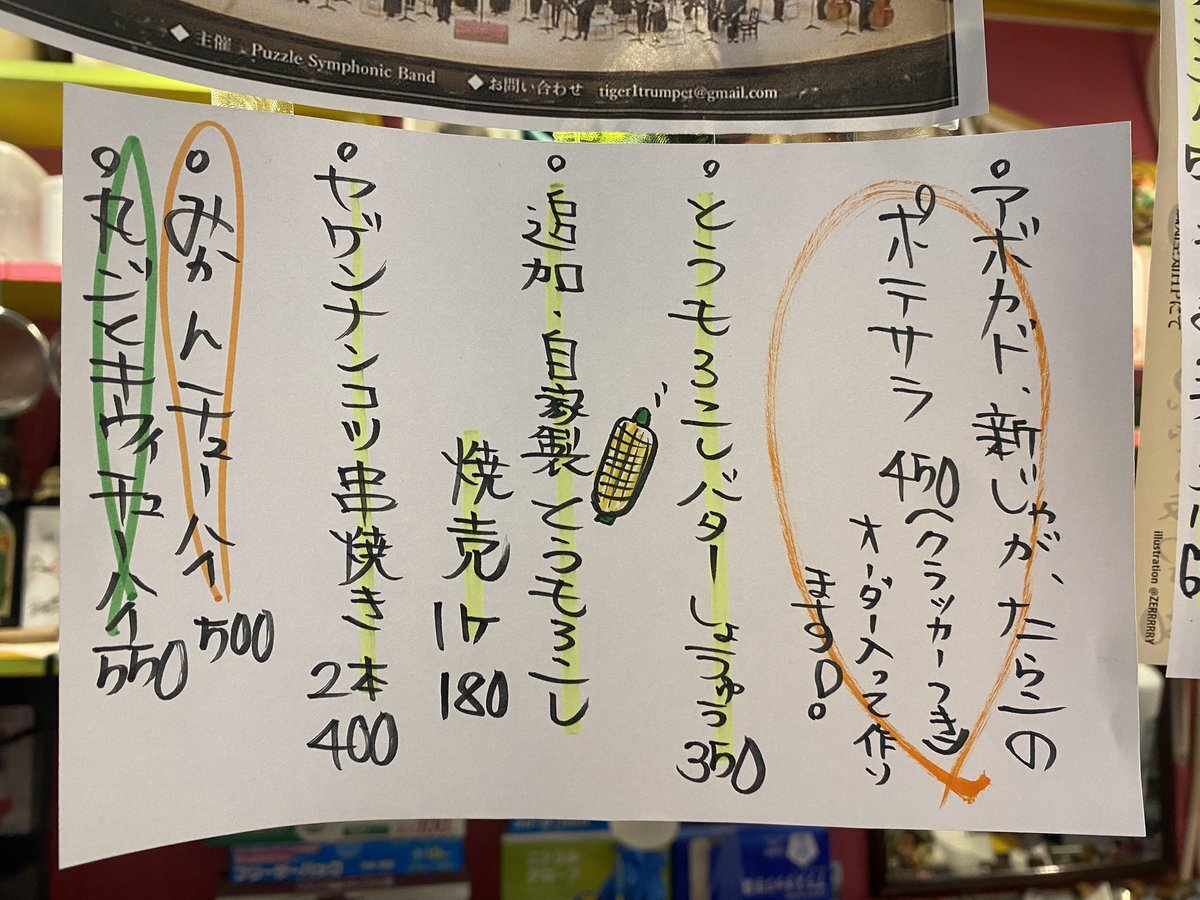 ◆主催 Puzzle Symphonic Band
◆お問い合わせ tiger1trumpet@gmail.com
。アボカド、新じゃが、たらこの
ポテサラ 450(クラッカーつき)
オーダー入って作り
ます!。
。とうもろこしバターしょうゆう 350
。追加・自家製とうもろこし
焼売 1ケ 180
。ヤゲンナンコツ串焼き 2本 400
。みかんチューハイ 500
。丸ごとキウイチューハイ 550
illustration @ZERRRRRY
フリーザーバッグ